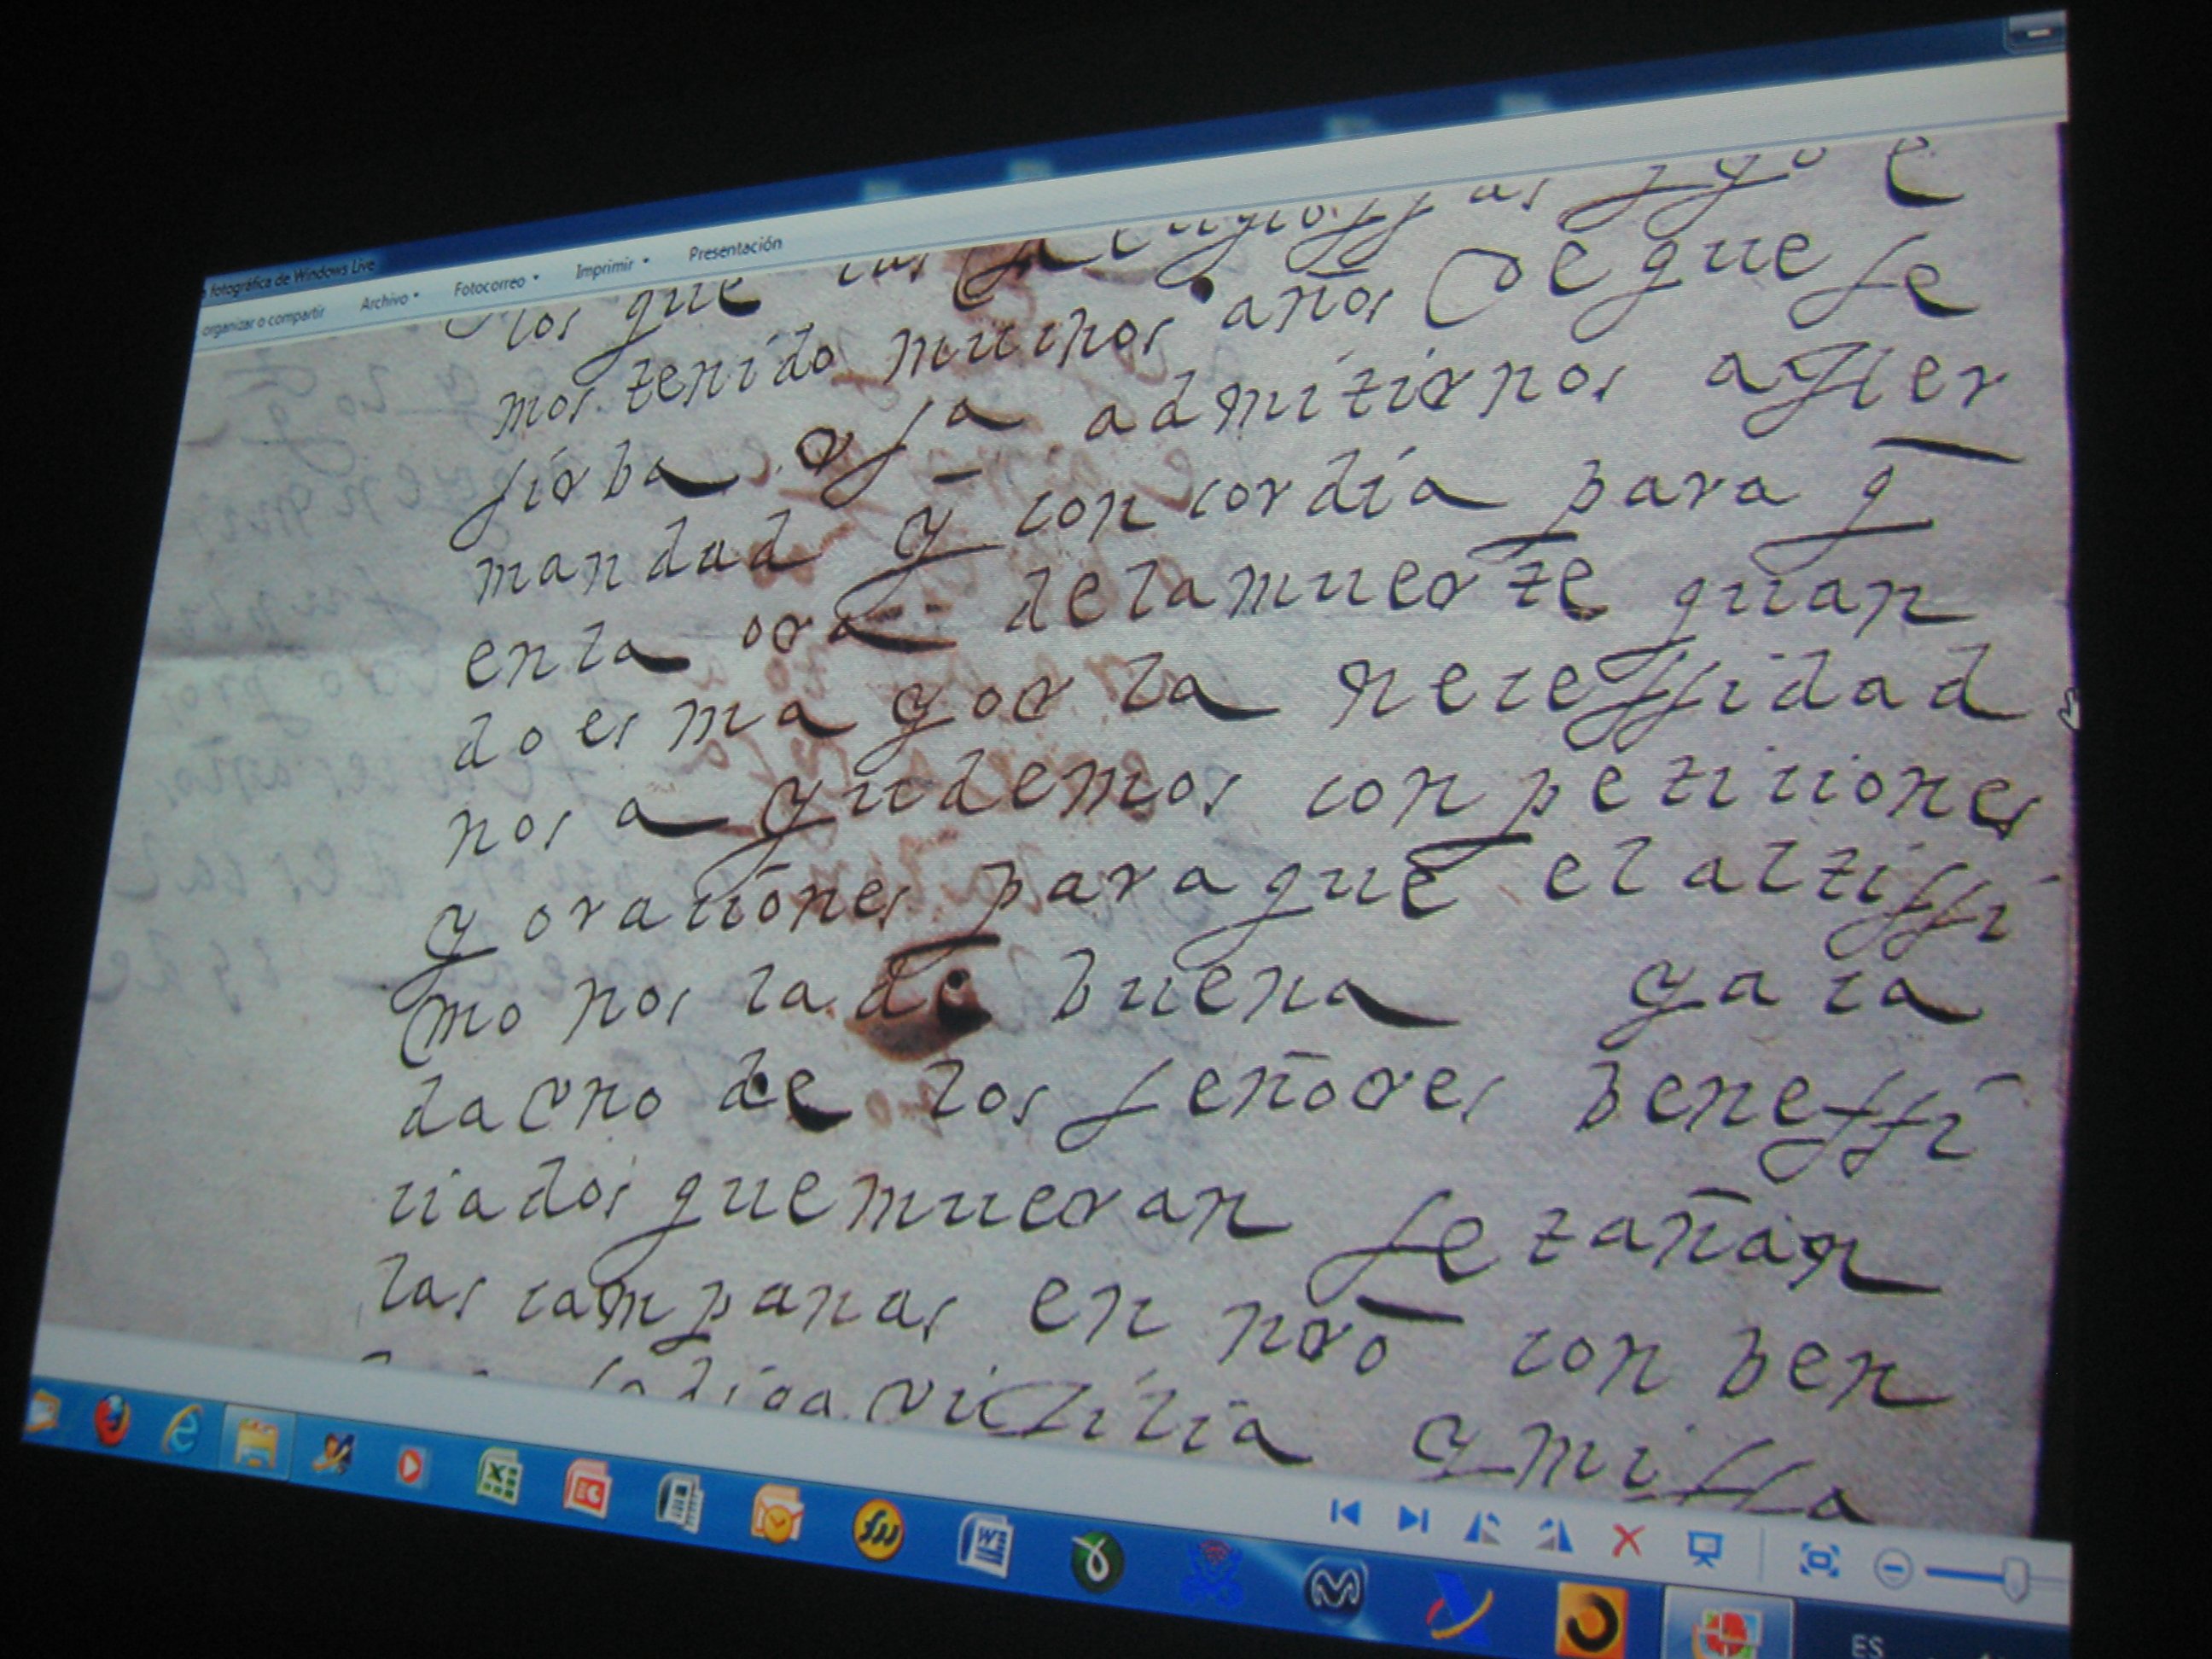 fotográfica de Windows Live
organizar o compartir Archivo Fotocorreo Imprimir Presentación
los que las Religiossas y yo e
mos tenido muchos años de que se
sirba Vsa admitirnos a Her
mandad y concordia para q̄
en la ora de la muerte quan
do es mayor la necessidad
nos ayudemos con peticiones
y oraciones para que el altissi
mo nos la de buena y a ca
da vno de los señores beneffi
ciados que mueran se tañan
las campanas en nr̄o conben
se diga vigilia y missa
ES